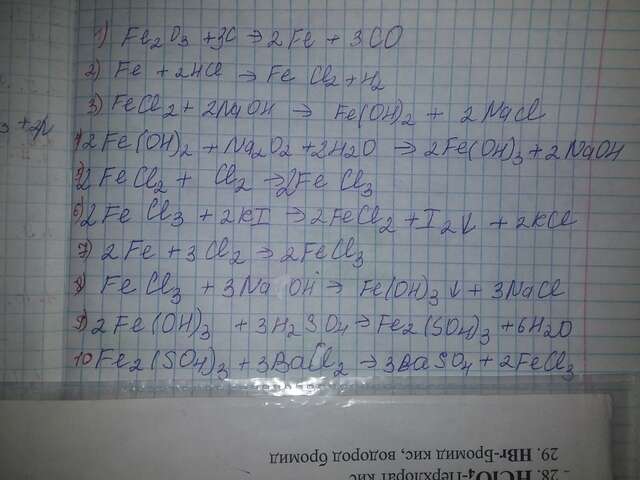 1) Fe2O3 + 3C → 2Fe + 3CO
2) Fe + 2HCl → FeCl2 + H2
3) FeCl2 + 2NaOH → Fe(OH)2 + 2NaCl
4) 2Fe(OH)2 + Na2O2 + 2H2O → 2Fe(OH)3 + 2NaOH
5) 2FeCl2 + Cl2 → 2FeCl3
6) 2FeCl3 + 2KI → 2FeCl2 + I2↓ + 2KCl
7) 2Fe + 3Cl2 → 2FeCl3
8) FeCl3 + 3NaOH → Fe(OH)3↓ + 3NaCl
9) 2Fe(OH)3 + 3H2SO4 → Fe2(SO4)3 + 6H2O
10 Fe2(SO4)3 + 3BaCl2 → 3BaSO4 + 2FeCl3
29. HBr-Бромид кис, водород бромид
28. HClO4-Перхлорат кис